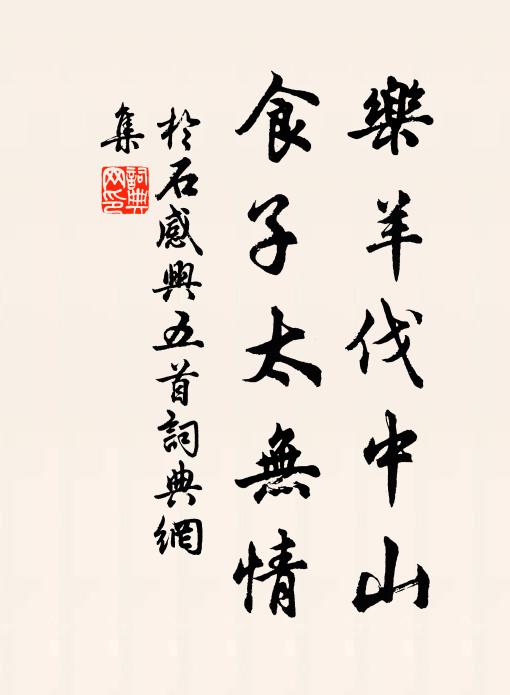 樂羊伐中山
食子太無情
於石感興五首詞典網
集
詞典
网印